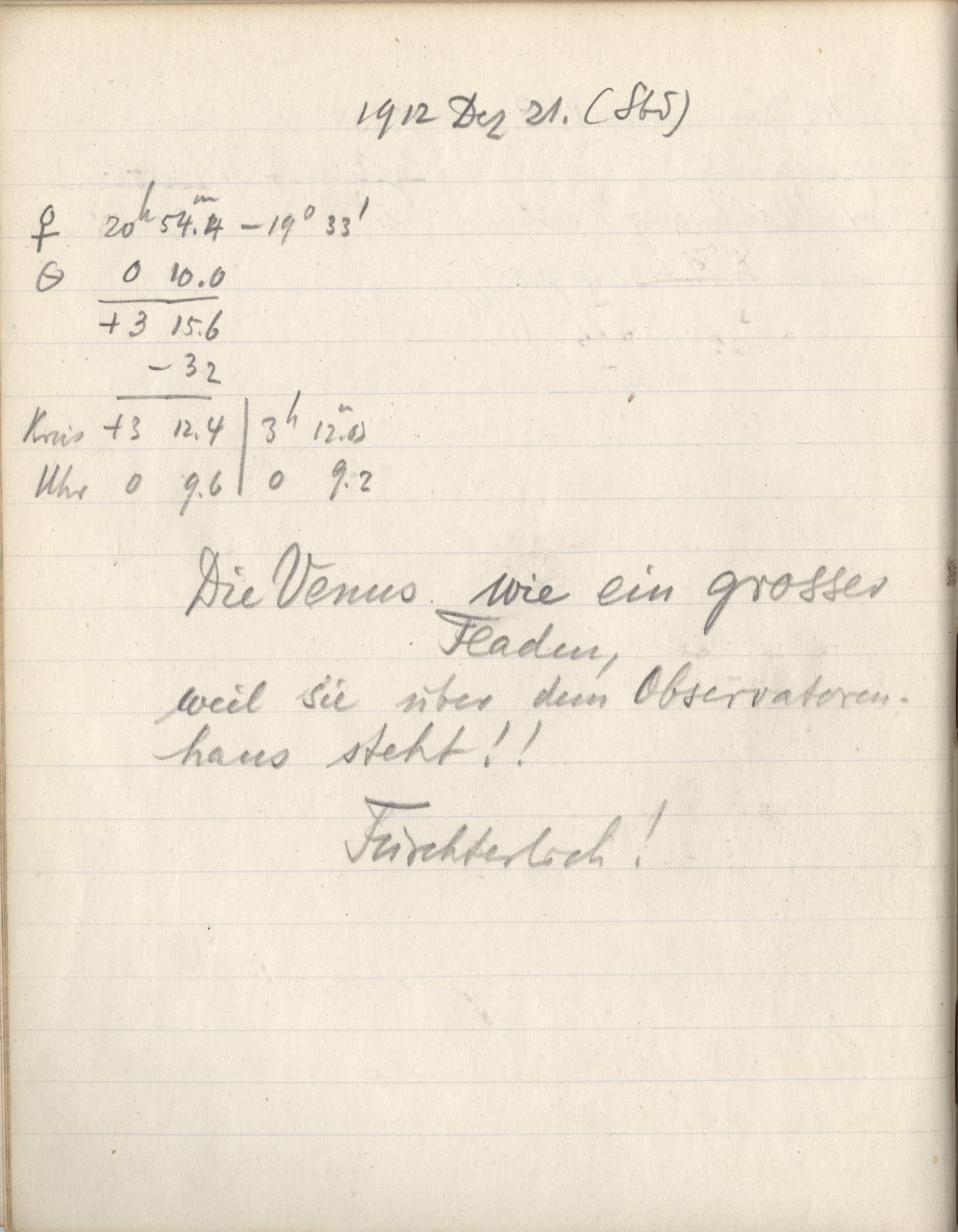 1912 Dez 21. (Sbd)
♀ 20h 54.m4 −19° 33'
θ 0 10.0
+3 15.6
− 3.2
Kreis +3 12.4 | 3h 12.m0
Uhr 0 9.6 | 0 9.2
Die Venus wie ein grosser
Fladen,
weil sie über dem Observatoren-
haus steht!!
Fürchterlich!